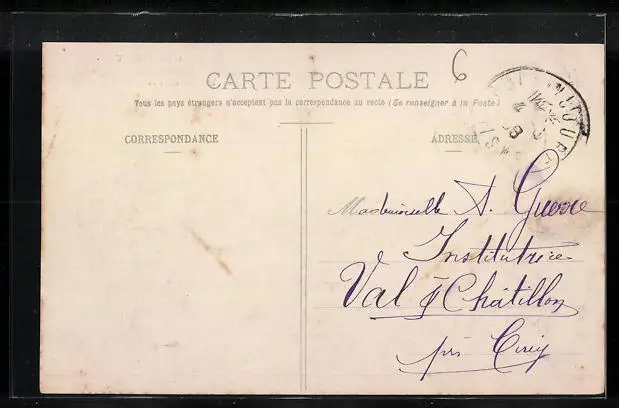 6
CARTE POSTALE
Tous les pays étrangers n'acceptent pas la correspondance au recto (Se renseigner à la Poste)
CORRESPONDANCE
ADRESSE
Mademoiselle A. Guerre
Institutrice
Val & Châtillon
près Cirey